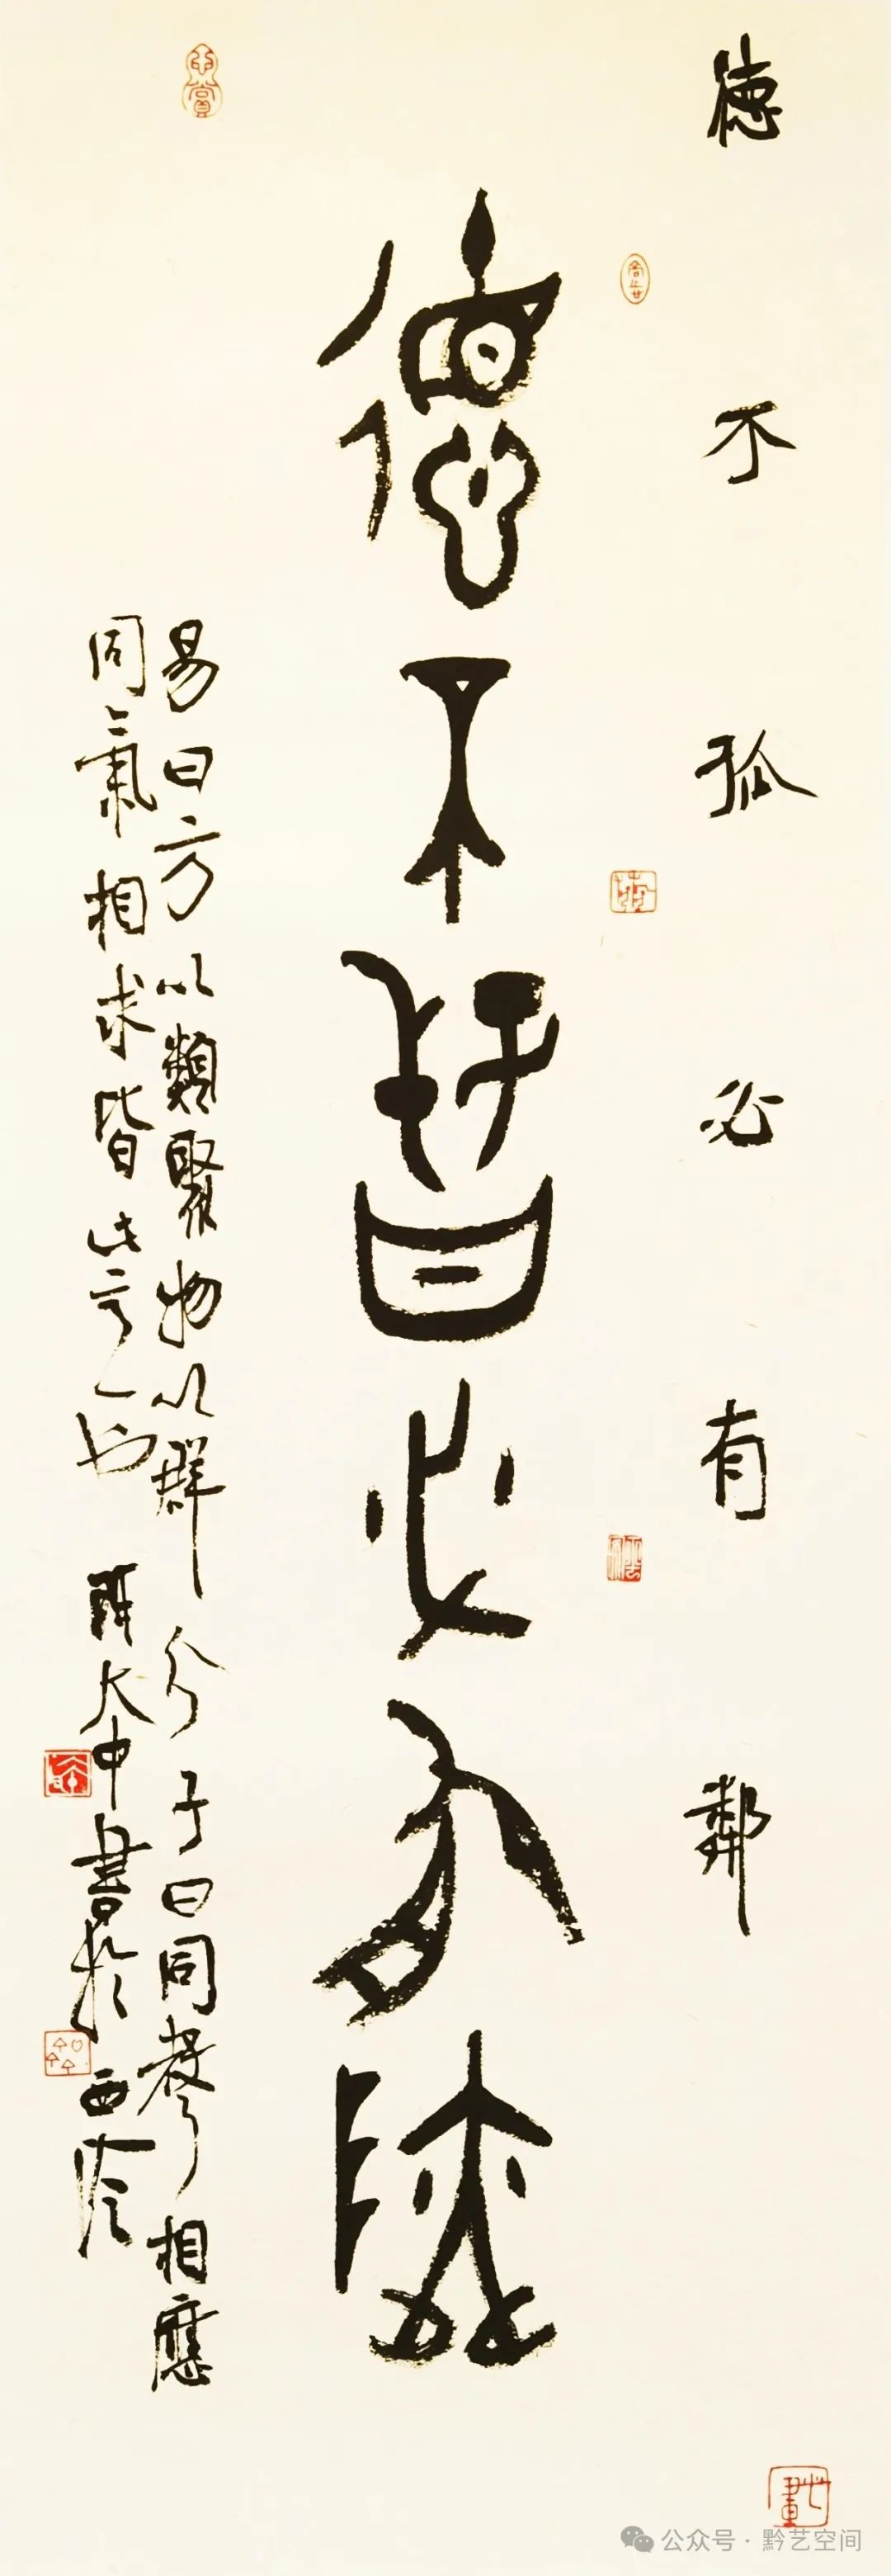 德不孤必有鄰
德不孤必有鄰
易曰方以類聚物以群分子曰同聲相應
同氣相求皆此也 大中書於西泠
公众号 · 黔艺空间